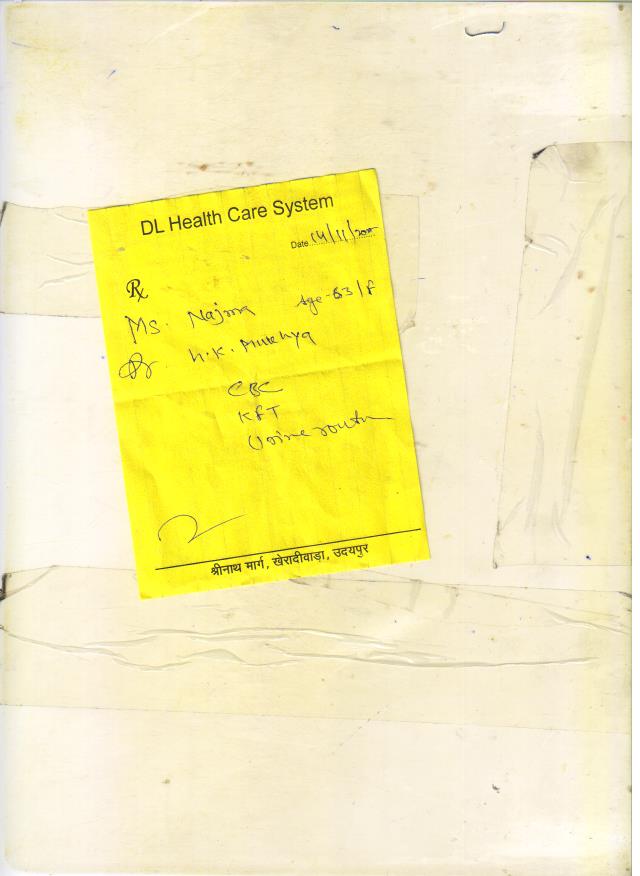 DL Health Care System
Date 14/11/200
Rx
Ms. Najma Age-63/f
Dr. h.K.
CBC
KfT
Urine routn
श्रीनाथ मार्ग, खेरादीवाड़ा, उदयपुर